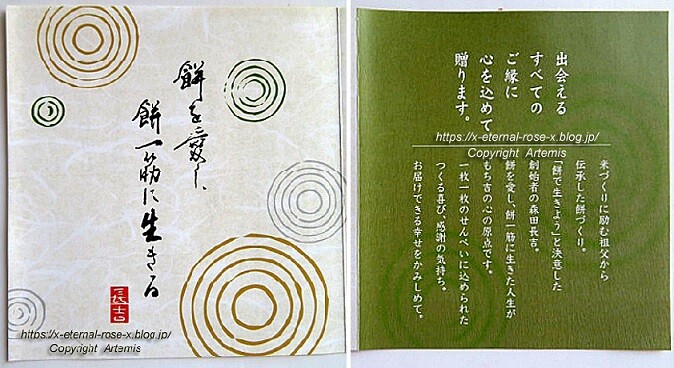 餅を愛し、
餅一筋に生きる
長吉
https://x-eternal-rose-x.blog.jp/
Copyright Artemis
出会える
すべての
ご縁に
心を込めて
贈ります。
https://x-eternal-rose-x.blog.jp/
Copyright Artemis
米づくりに励む祖父から
伝承した餅づくり。
「餅で生きよう」と決意した
創始者の森田長吉。
餅を愛し、餅一筋に生きた人生が
もち吉の心の原点です。
一枚一枚のせんべいに込められた
つくる喜び、感謝の気持ち。
お届けできる幸せをかみしめて。